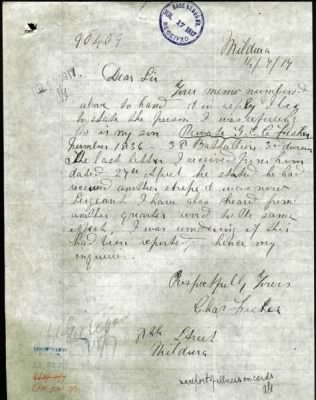 BASE RECORDS
JUL 17 1917
RECEIVED
90409
Mildura
14/7/17
Dear Sir
Your memo numbered
above to hand & in reply I beg
to state the person I was refering
to is my son Private G. E. C. Fisher
Number 1836 38 Battallion 3rd division
The last letter I received from him
dated 27th April he stated he had
received another stripe & was now
Sergeant I have also heard from
another quarter word to the same
effect, I was wondering if this
had been reported hence my
inquiries.
Respectfully Yours
Chas Fisher
7th Street
Mildura
no report of illness on cards